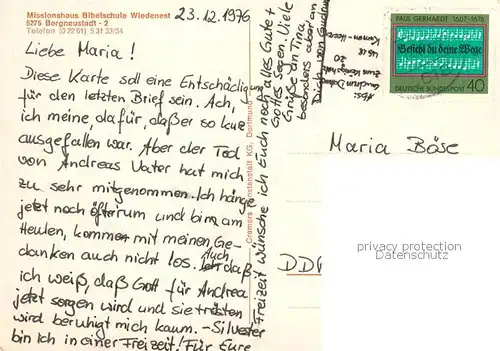 Missionshaus Bibelschule Wiedenest
5275 Bergneustadt - 2
Telefon (0 22 61) 5 31 33/34
23.12.1976
Liebe Maria!
Diese Karte soll eine Entschädigung
für den letzten Brief sein. Ach,
ich meine, dafür, daßer so kurz
ausgefallen war. Aber der Tod
von Andreas Vater hat mich
zu sehr mitgenommen. Ich hänge
jetzt noch öfterrum und bin am
Heulen, kommen mit meinen Ge-
danken auch nicht los. Auch daß
ich weiß, daß Gott für Andrea
jetzt sorgen wird und sie trösten
wird beruhigt mich kaum. - Silvester
bin ich in einer Freizeit! Für Eure
Freizeit wünsche ich Euch noch alles Gute +
Gottes Segen. Viele
Grüße an Tina,
besonders aber an
Dich von
Cramers Kunstanstalt KG, Dortmund
PAUL GERHARDT 1607-1676
Befiehl du deine Wege
DEUTSCHE BUNDESPOST 40
Maria Böse
DD
privacy protection
www.oldthing.de